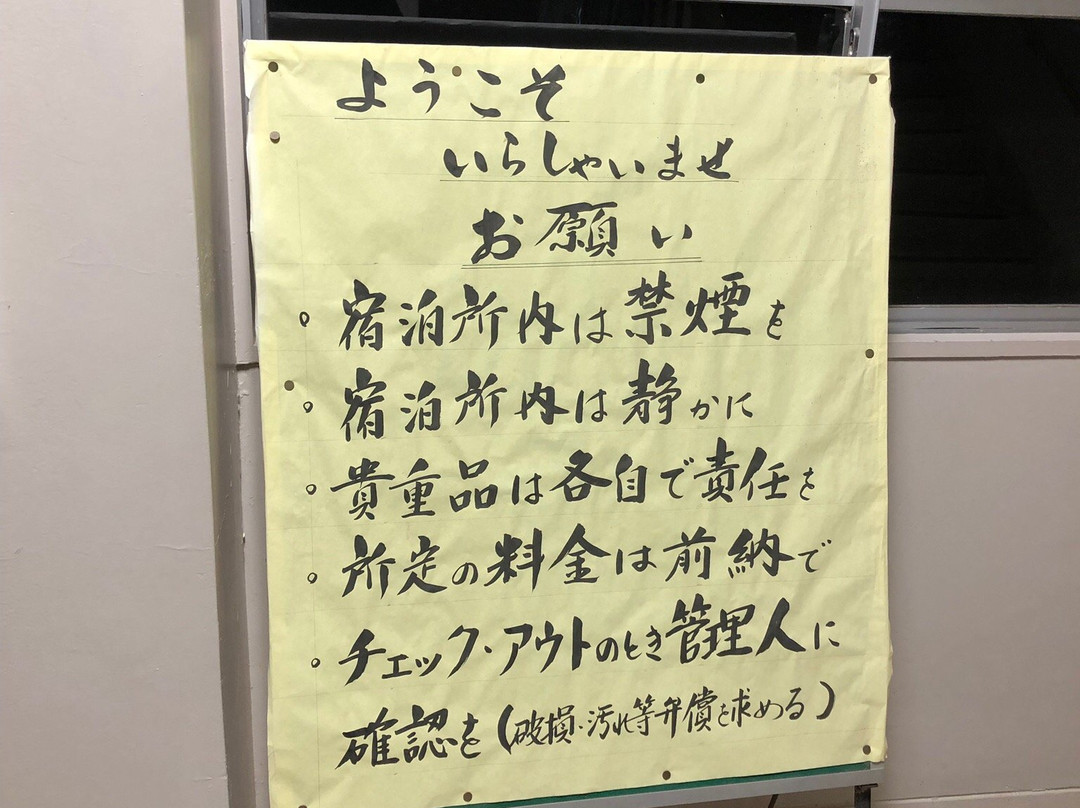 ようこそ
いらしゃいませ
お願い
。宿泊所内は禁煙を
。宿泊所内は静かに
。貴重品は各自で責任を
。所定の料金は前納で
。チェック・アウトのとき管理人に
確認を(破損・汚れ等弁償を求める)